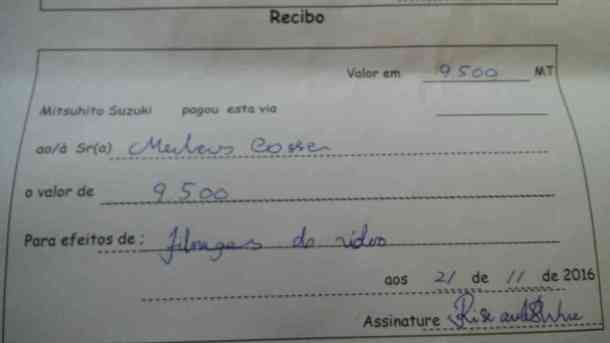 Recibo
Valor em 9 500 MT
Mitsuhito Suzuki pagou esta via
ao/à Sr(a)
o valor de 9 500
Para efeitos de : filmagens do video
aos 21 de 11 de 2016
Assinature